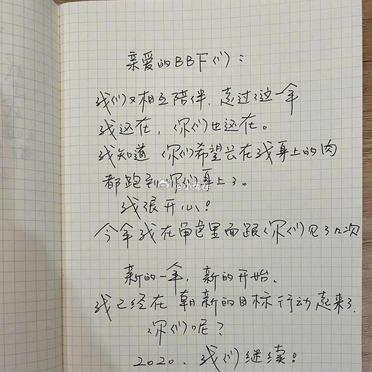 亲爱的BB下们：
我们又相互陪伴，走过了这一年
我还在，你们也还在。
我知道你们希望长在我身上的肉
都跑到你们身上了。
我很开心！
今年我在角色里面跟你们见了几次
新的一年，新的开始。
我已经在朝新的目标行动起来了
你们呢？
2020，我们继续！